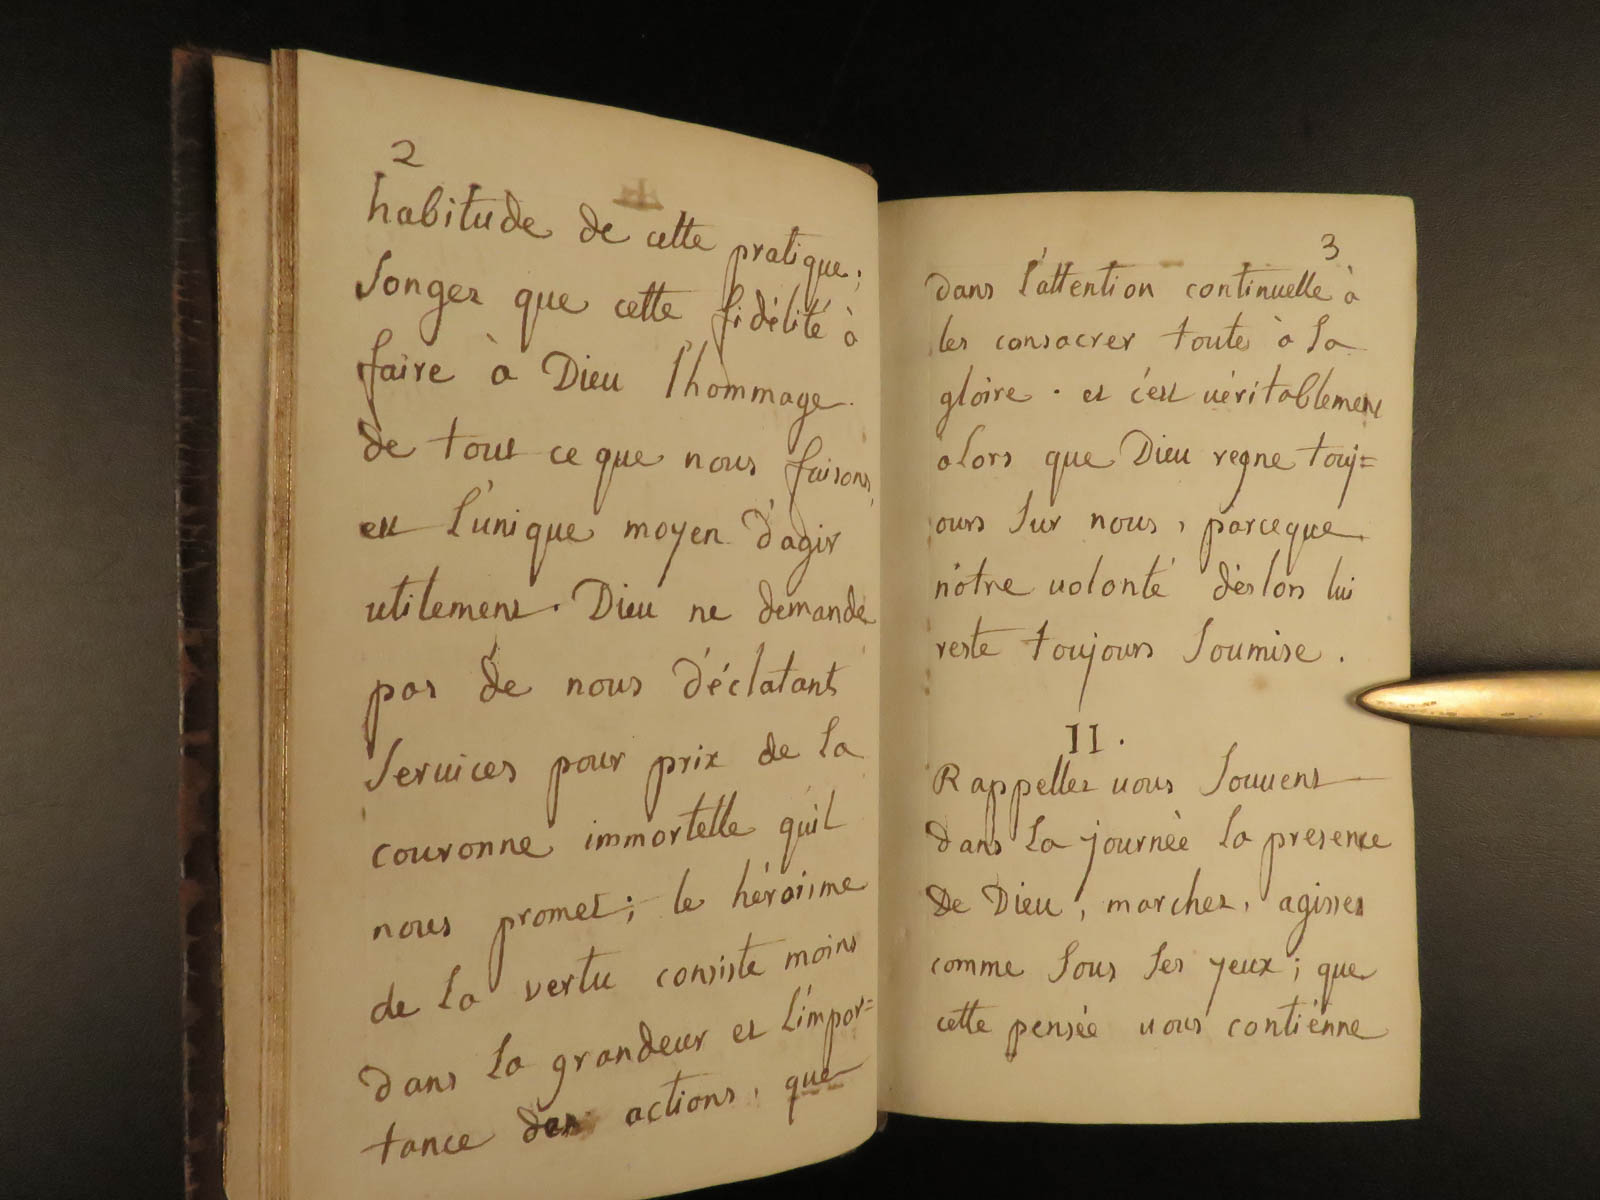 2
habitude de cette pratique;
Songez que cette fidélité à
faire à Dieu l'hommage
de tout ce que nous faisons,
est l'unique moyen d'agir
utilement. Dieu ne demande
pas de nous d'éclatants
Services pour prix de la
couronne immortelle qu'il
nous promet; le héroisme
de la vertu consiste moins
dans la grandeur et l'impor=
tance des actions, que
3
dans l'attention continuelle à
les consacrer toute à Sa
gloire. et c'est véritablement
alors que Dieu regne touj=
ours Sur nous, parceque
nôtre volonté dèslors lui
reste toujours Soumise.
II.
Rappellez vous Souvent
dans la journée la presence
de Dieu, marchez, agissez
comme Sous Ses yeux; que
cette pensée vous contienne